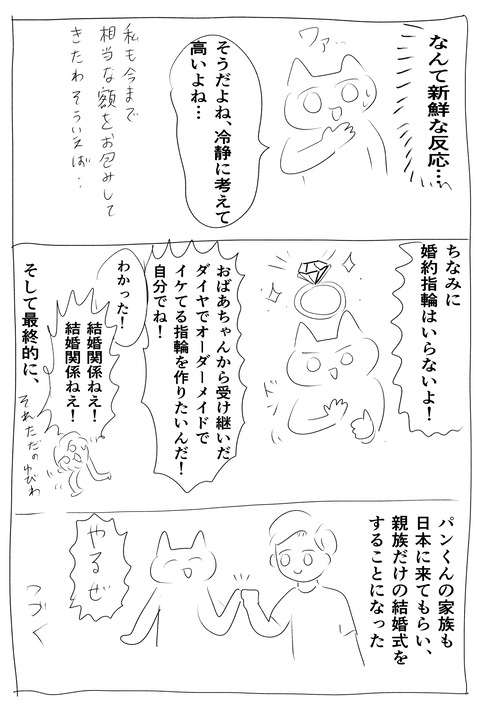 なんて新鮮な反応…
いいね
ワァ…
そうだよね、冷静に考えて
高いよね…
私も今まで
相当な額をお包みして
きたわそういえば…
ちなみに
婚約指輪はいらないよ！
おばあちゃんから受け継いだ
ダイヤでオーダーメイドで
イケてる指輪を作りたいんだ！
自分でね！
わかった！
結婚関係ねえ！
結婚関係ねえ！
それただのゆびわ
そして最終的に、
パンくんの家族も
日本に来てもらい、
親族だけの結婚式を
することになった
やるぜ
つづく